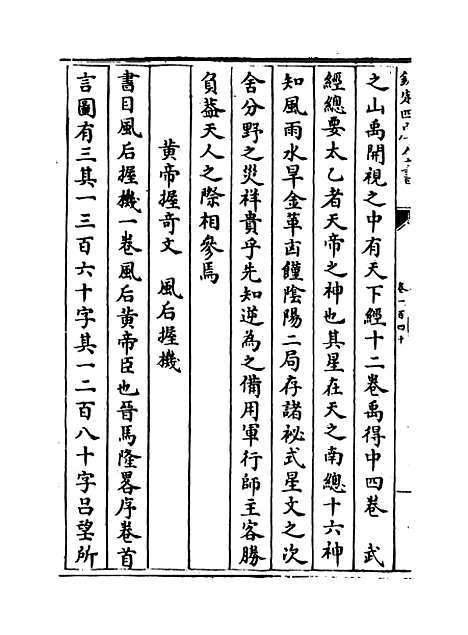 欽定四庫全書
卷一百四十
之山禹開視之中有天下經十二卷禹得中四卷　武
經總要太乙者天帝之神也其星在天之南總十六神
知風雨水旱金革凶饉陰陽二局存諸祕式星文之次
舍分野之災祥貴乎先知逆為之備用軍行師主客勝
負蓋天人之際相參焉
黄帝握奇文　風后握機
書目風后握機一卷風后黄帝臣也晉馬隆畧序卷首
言圖有三其一三百六十字其一二百八十字吕望所